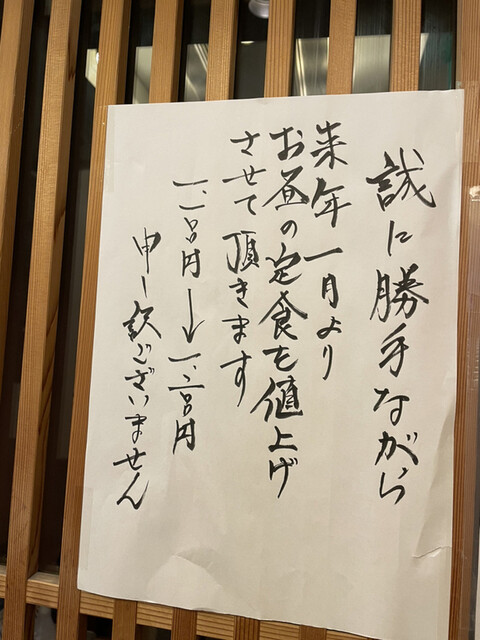 誠に勝手ながら
来年一月より
お昼の定食を値上げ
させて頂きます
一、一〇〇円→一、二〇〇円
申し訳ございません